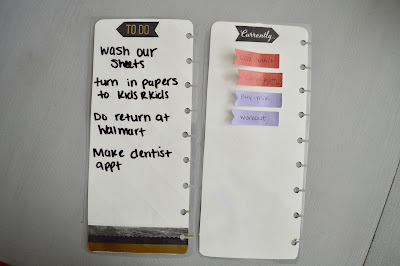 TO DO
wash our
sheets
turn in papers
to Kids R Kids
Do return at
Walmart
Make dentist
appt
Currently
workout